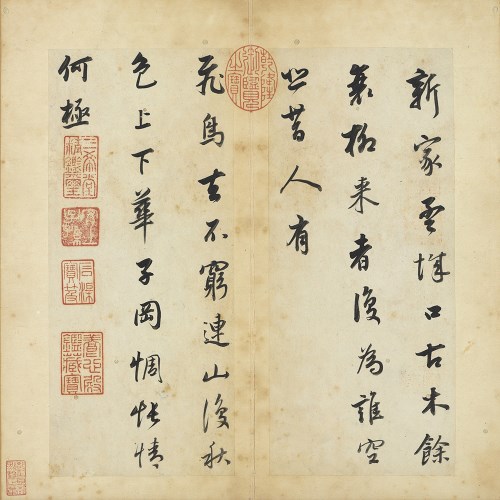 新家孟城口古木餘
衰柳来者復為誰空
悲昔人有
乾隆御覽之寶
飛鳥去不窮連山復秋
色上下華子岡惆悵情
何極
三希堂精鑑璽
宜子孫
石渠寶笈
養心殿鑑藏寶